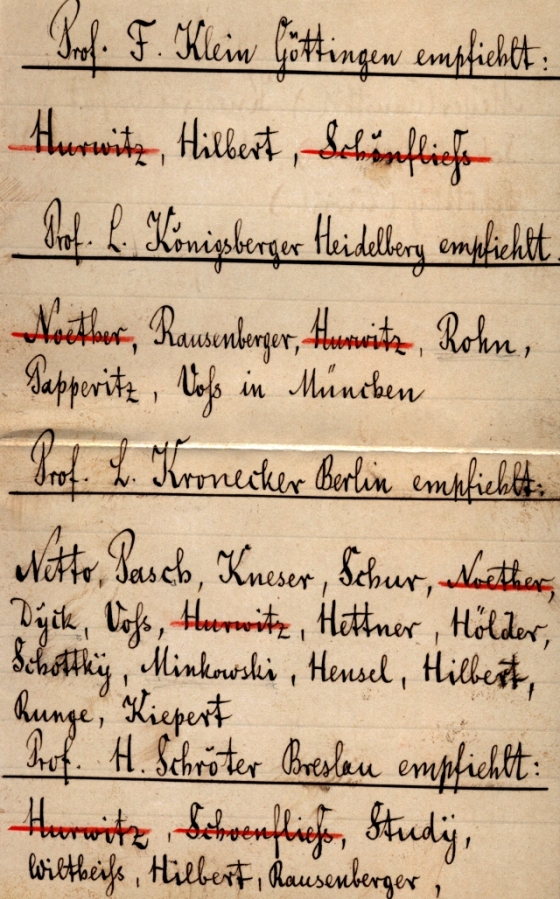 Prof. F. Klein Göttingen empfiehlt:
Hurwitz, Hilbert, Schönfließ
Prof. L. Königsberger Heidelberg empfiehlt.
Noether, Rausenberger, Hurwitz, Rohn,
Papperitz, Voß in München
Prof. L. Kronecker Berlin empfiehlt:
Netto, Pasch, Kneser, Schur, Noether,
Dyck, Voß, Hurwitz, Hettner, Hölder,
Schottkÿ, Minkowski, Hensel, Hilbert,
Runge, Kiepert
Prof. H. Schröter Breslau empfiehlt:
Hurwitz, Schoenfließ, Studÿ,
Wiltheiß, Hilbert, Rausenberger,